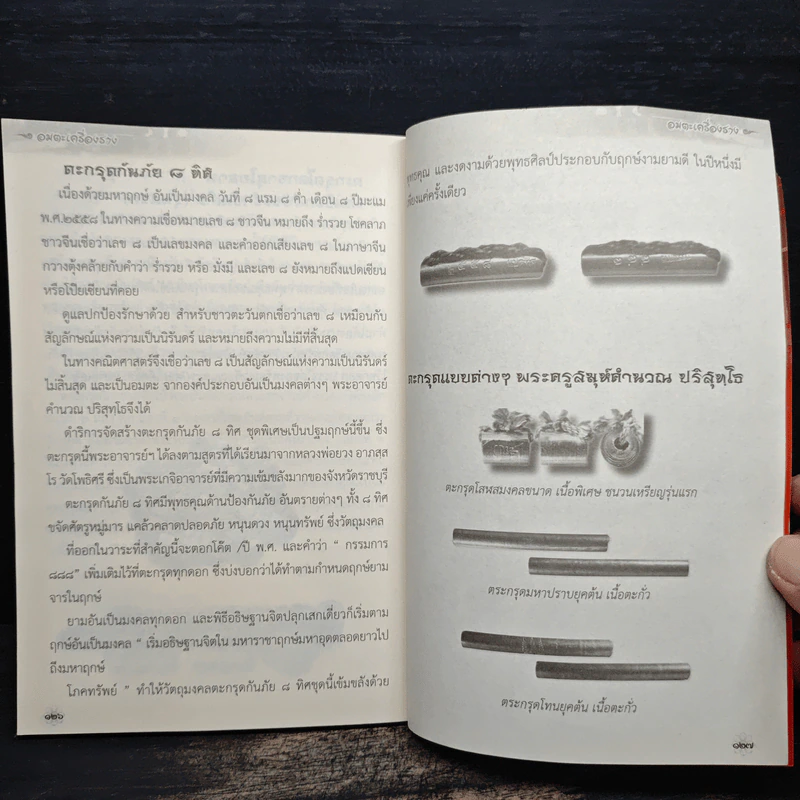 อมตะเครื่องราง
ตะกรุดกันภัย ๘ ทิศ
เนื่องด้วยมหาฤกษ์ อันเป็นมงคล วันที่ ๘ แรม ๘ ค่ำ เดือน ๘ ปีมะแม
พ.ศ.๒๕๕๘ ในทางความเชื่อหมายเลข ๘ ชาวจีน หมายถึง ร่ำรวย โชคลาภ
ชาวจีนเชื่อว่าเลข ๘ เป็นเลขมงคล และคำออกเสียงเลข ๘ ในภาษาจีน
กวางตุ้งคล้ายกับคำว่า ร่ำรวย หรือ มั่งมี และเลข ๘ ยังหมายถึงแปดเซียน
หรือโป๊ยเซียนที่คอย
ดูแลปกป้องรักษาด้วย สำหรับชาวตะวันตกเชื่อว่าเลข ๘ เหมือนกับ
สัญลักษณ์แห่งความเป็นนิรันดร์ และหมายถึงความไม่มีที่สิ้นสุด
ในทางคณิตศาสตร์จึงเชื่อว่าเลข ๘ เป็นสัญลักษณ์แห่งความเป็นนิรันดร์
ไม่สิ้นสุด และเป็นอมตะ จากองค์ประกอบอันเป็นมงคลต่างๆ พระอาจารย์
คำนวณ ปริสุทฺโธจึงได้
ดำริการจัดสร้างตะกรุดกันภัย ๘ ทิศ ชุดพิเศษเป็นปฐมฤกษ์นี้ขึ้น ซึ่ง
ตะกรุดนี้พระอาจารย์ฯ ได้ลงตามสูตรที่ได้เรียนมาจากหลวงพ่อยวง อาภสฺส
โร วัดโพธิศรี ซึ่งเป็นพระเกจิอาจารย์ที่มีความเข้มขลังมากของจังหวัดราชบุรี
ตะกรุดกันภัย ๘ ทิศมีพุทธคุณด้านป้องกันภัย อันตรายต่างๆ ทั้ง ๘ ทิศ
ขจัดศัตรูหมู่มาร แคล้วคลาดปลอดภัย หนุนดวง หนุนทรัพย์ ซึ่งวัตถุมงคล
ที่ออกในวาระที่สำคัญนี้จะตอกโค๊ต /ปี พ.ศ. และคำว่า " กรรมการ
๘๘๘" เพิ่มเติมไว้ที่ตะกรุดทุกดอก ซึ่งบ่งบอกว่าได้ทำตามกำหนดฤกษ์ยาม
จารในฤกษ์
ยามอันเป็นมงคลทุกดอก และพิธีอธิษฐานจิตปลุกเสกเดี่ยวก็เริ่มตาม
ฤกษ์อันเป็นมงคล " เริ่มอธิษฐานจิตใน มหาราชาฤกษ์มหาอุดตลอดยาวไป
ถึงมหาฤกษ์
โภคทรัพย์ " ทำให้วัตถุมงคลตะกรุดกันภัย ๘ ทิศชุดนี้เข้มขลังด้วย
๑๒๖
อมตะเครื่องราง
พุทธคุณ และงดงามด้วยพุทธศิลป์ประกอบกับฤกษ์งามยามดี ในปีหนึ่งมี
เพียงแค่ครั้งเดียว
ตะกรุดแบบต่างๆ พระครูสมุห์คำนวณ ปริสุทฺโธ
ตะกรุดโสฬสมงคลขนาด เนื้อพิเศษ ชนวนเหรียญรุ่นแรก
ตระกรุดมหาปราบยุคต้น เนื้อตะกั่ว
ตระกรุดโทนยุคต้น เนื้อตะกั่ว
๑๒๗